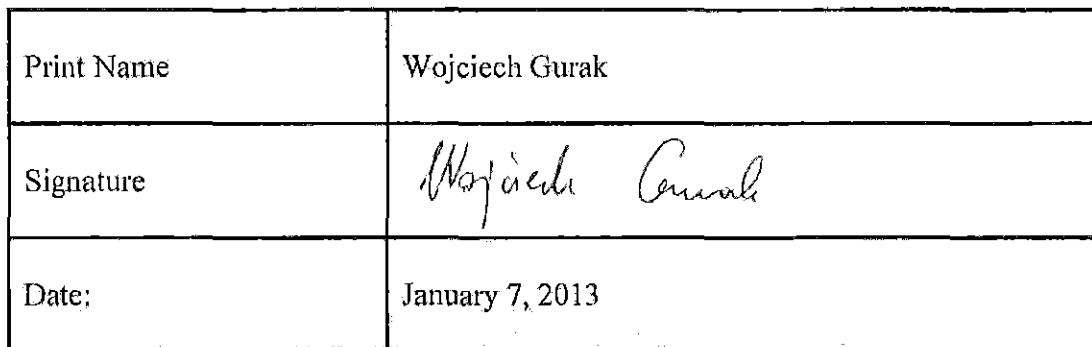 Print Name Wojciech Gurak
Signature Wojciech Gurak
Date: January 7, 2013